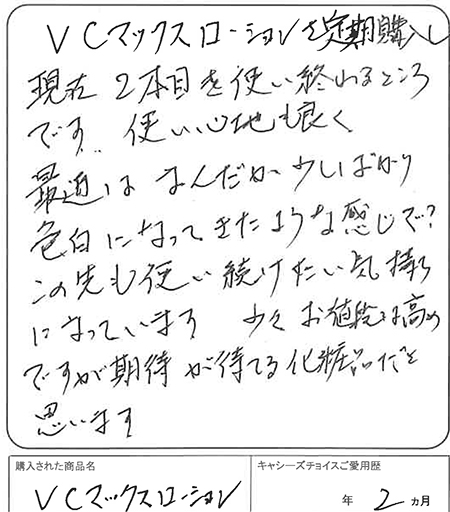 VCマックスローションを定期購入し
現在 2本目を使い終わるところ
です。使い心地も良く
最近は なんだか 少しばかり
色白になってきたような感じで?
この先も使い続けたい気持ち
になっています 少々お値段は高め
ですが期待が待てる化粧品だと
思います
購入された商品名
キャシーズチョイスご愛用歴
VCマックスローション
年 2 ヵ月